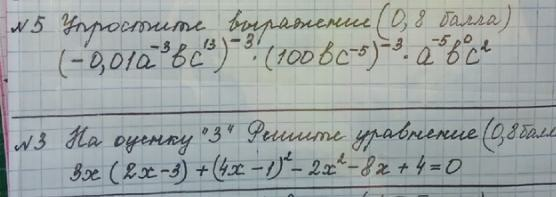 №5 Упростите выражение (0,8 балла)
(-0,01a⁻³bc¹³)⁻³ · (100bc⁻⁵)⁻³ · a⁻⁵b⁰c²
№3 На оценку "3" Решите уравнение (0,8балл
3x(2x-3)+(4x-1)²-2x²-8x+4=0